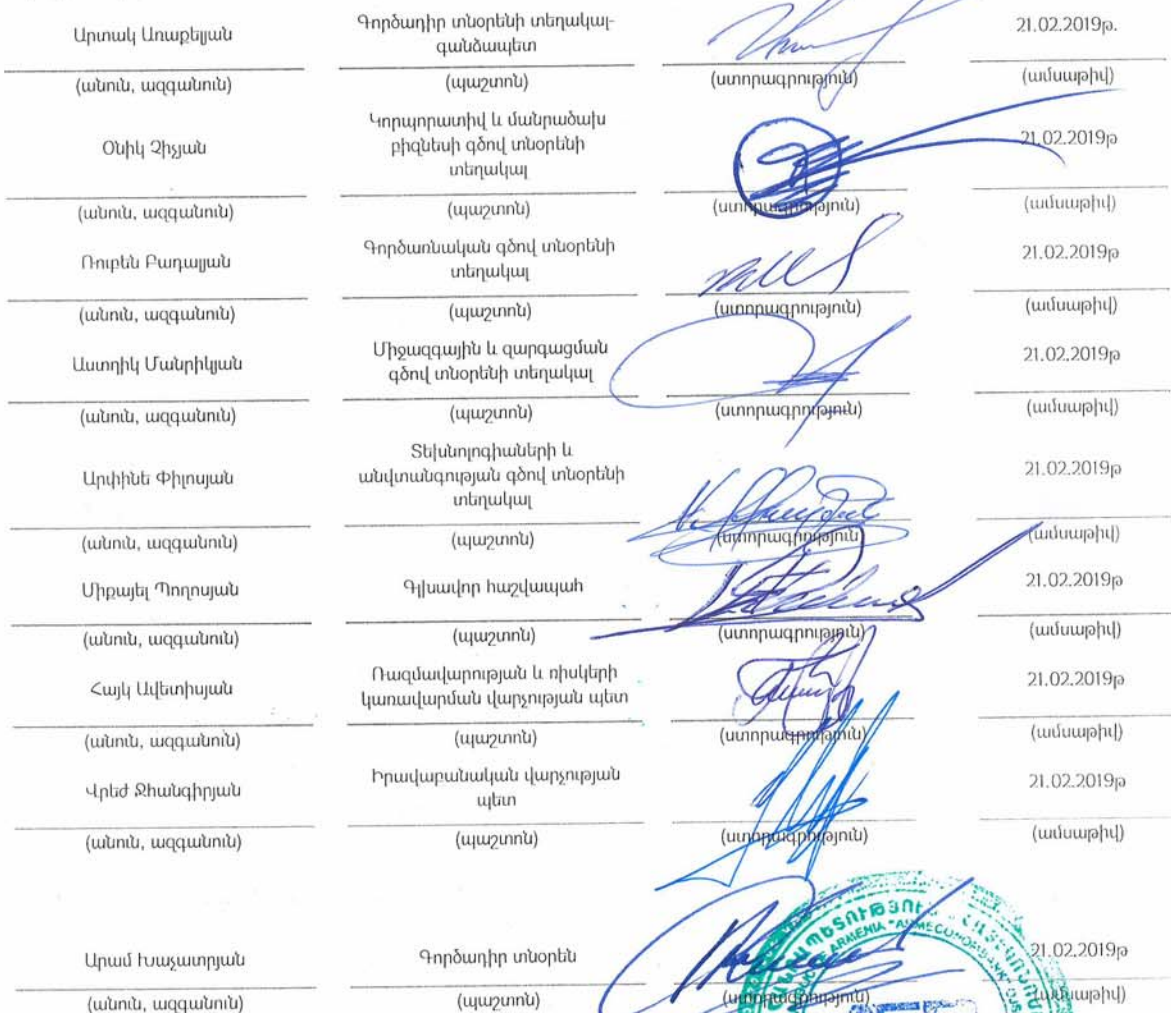 Արտակ Առաքելյան
Գործադիր տնօրենի տեղակալ-
գանձապետ
21.02.2019թ.
(անուն, ազգանուն) (պաշտոն) (ստորագրություն) (ամսաթիվ)
Օնիկ Չիչյան
Կորպորատիվ և մանրածախ
բիզնեսի գծով տնօրենի
տեղակալ
21.02.2019թ
(անուն, ազգանուն) (պաշտոն) (ստորագրություն) (ամսաթիվ)
Ռուբեն Բադալյան
Գործառնական գծով տնօրենի
տեղակալ
21.02.2019թ
(անուն, ազգանուն) (պաշտոն) (ստորագրություն) (ամսաթիվ)
Աստղիկ Մանրիկյան
Միջազգային և զարգացման
գծով տնօրենի տեղակալ
21.02.2019թ
(անուն, ազգանուն) (պաշտոն) (ստորագրություն) (ամսաթիվ)
Արփինե Փիլոսյան
Տեխնոլոգիաների և
անվտանգության գծով տնօրենի
տեղակալ
21.02.2019թ
(անուն, ազգանուն) (պաշտոն) (ստորագրություն) (ամսաթիվ)
Միքայել Պողոսյան
Գլխավոր հաշվապահ
21.02.2019թ
(անուն, ազգանուն) (պաշտոն) (ստորագրություն) (ամսաթիվ)
Հայկ Ավետիսյան
Ռազմավարության և ռիսկերի
կառավարման վարչության պետ
21.02.2019թ
(անուն, ազգանուն) (պաշտոն) (ստորագրություն) (ամսաթիվ)
Վրեժ Ջհանգիրյան
Իրավաբանական վարչության
պետ
21.02.2019թ
(անուն, ազգանուն) (պաշտոն) (ստորագրություն) (ամսաթիվ)
Արամ Խաչատրյան
Գործադիր տնօրեն
ARMENIA "ARMECONOMBANK" OJS
21.02.2019թ
(անուն, ազգանուն) (պաշտոն) (ստորագրություն) (ամսաթիվ)